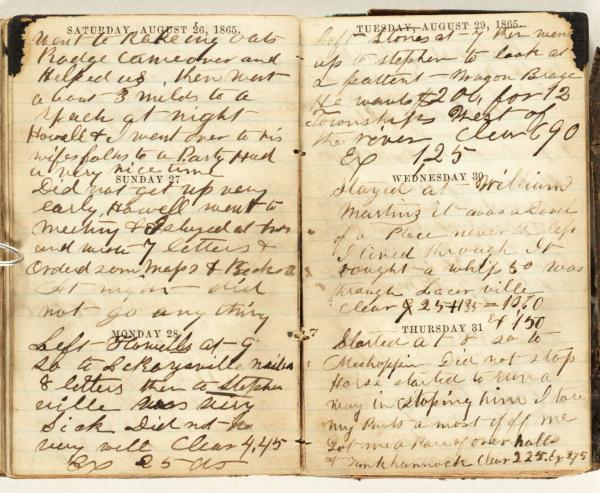 SATURDAY, AUGUST 26, 1865.
Went to Rakeing Oats
Badge came over and
Helped us then went
about 3 milds to a
at night
Howell & I went over to his
wifes folks to a Party Had
a very nice time
SUNDAY 27
Did not get up very
early, Howell went to
meeting & I stayed at
and wrote 7 letters &
Orded som Maps & Books
At night did
not go any thing
MONDAY 28
Left Howells at 9
so to LeRaysville mailed
8 letters then to Stephen
ville was very
Sick Did not
very well Clear 4,45
Ex 25 cts
TUESDAY, AUGUST 29, 1865.
Left Stones at then went
up to stephen to look at
a pattent Wagon Brage
He wants $200, for 12
Townships West of
the river Clear 690
Ex 125
WEDNESDAY 30
Stayed at William
Martins It was a
of a Place never
I lived through It
bought a whip 50
through Lacer ville
Clear 9 25 + 135 = 1060
Ex 150
THURSDAY 31
Started at 8 so to
Meshoppin Did not stop
Horse started to run a
way in stoping him I tore
my Pants a most off off me
Got me a Pare of over halls
at Tunkhannock Clear 225. Ex 375